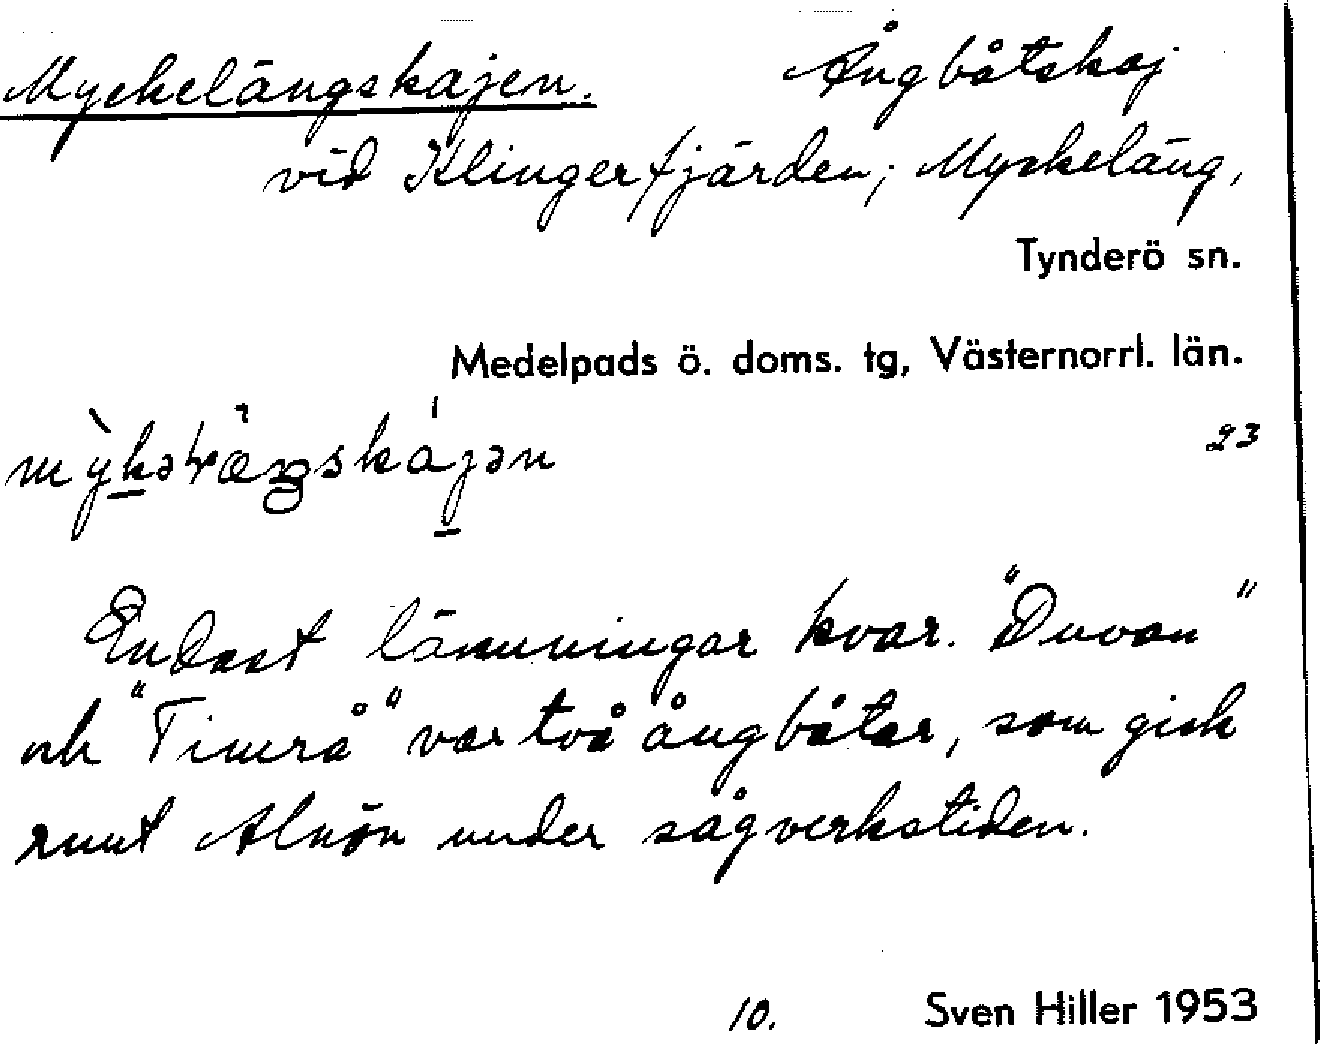 Myckelängskajen. Ångbåtskaj
vid Klingerfjärden; Myckeläng,
Tynderö sn.
Medelpads ö. doms. tg, Västernorrl. län.
23
Endast lämningar kvar. "Duvan"
och "Timrå" var två ångbåtar, som gick
runt Alnön under sågverkstiden.
10. Sven Hiller 1953